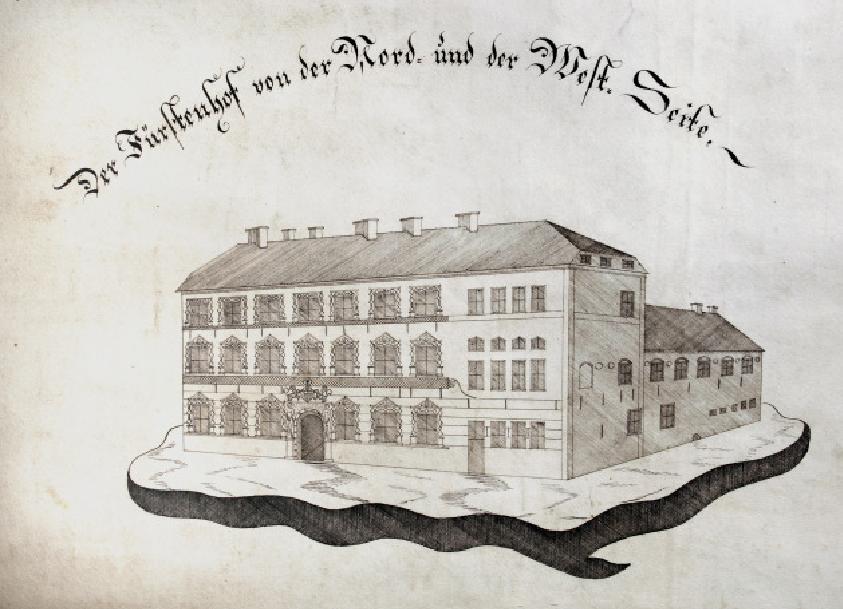 Der Fürstenhof von der Nord- und der West- Seite.